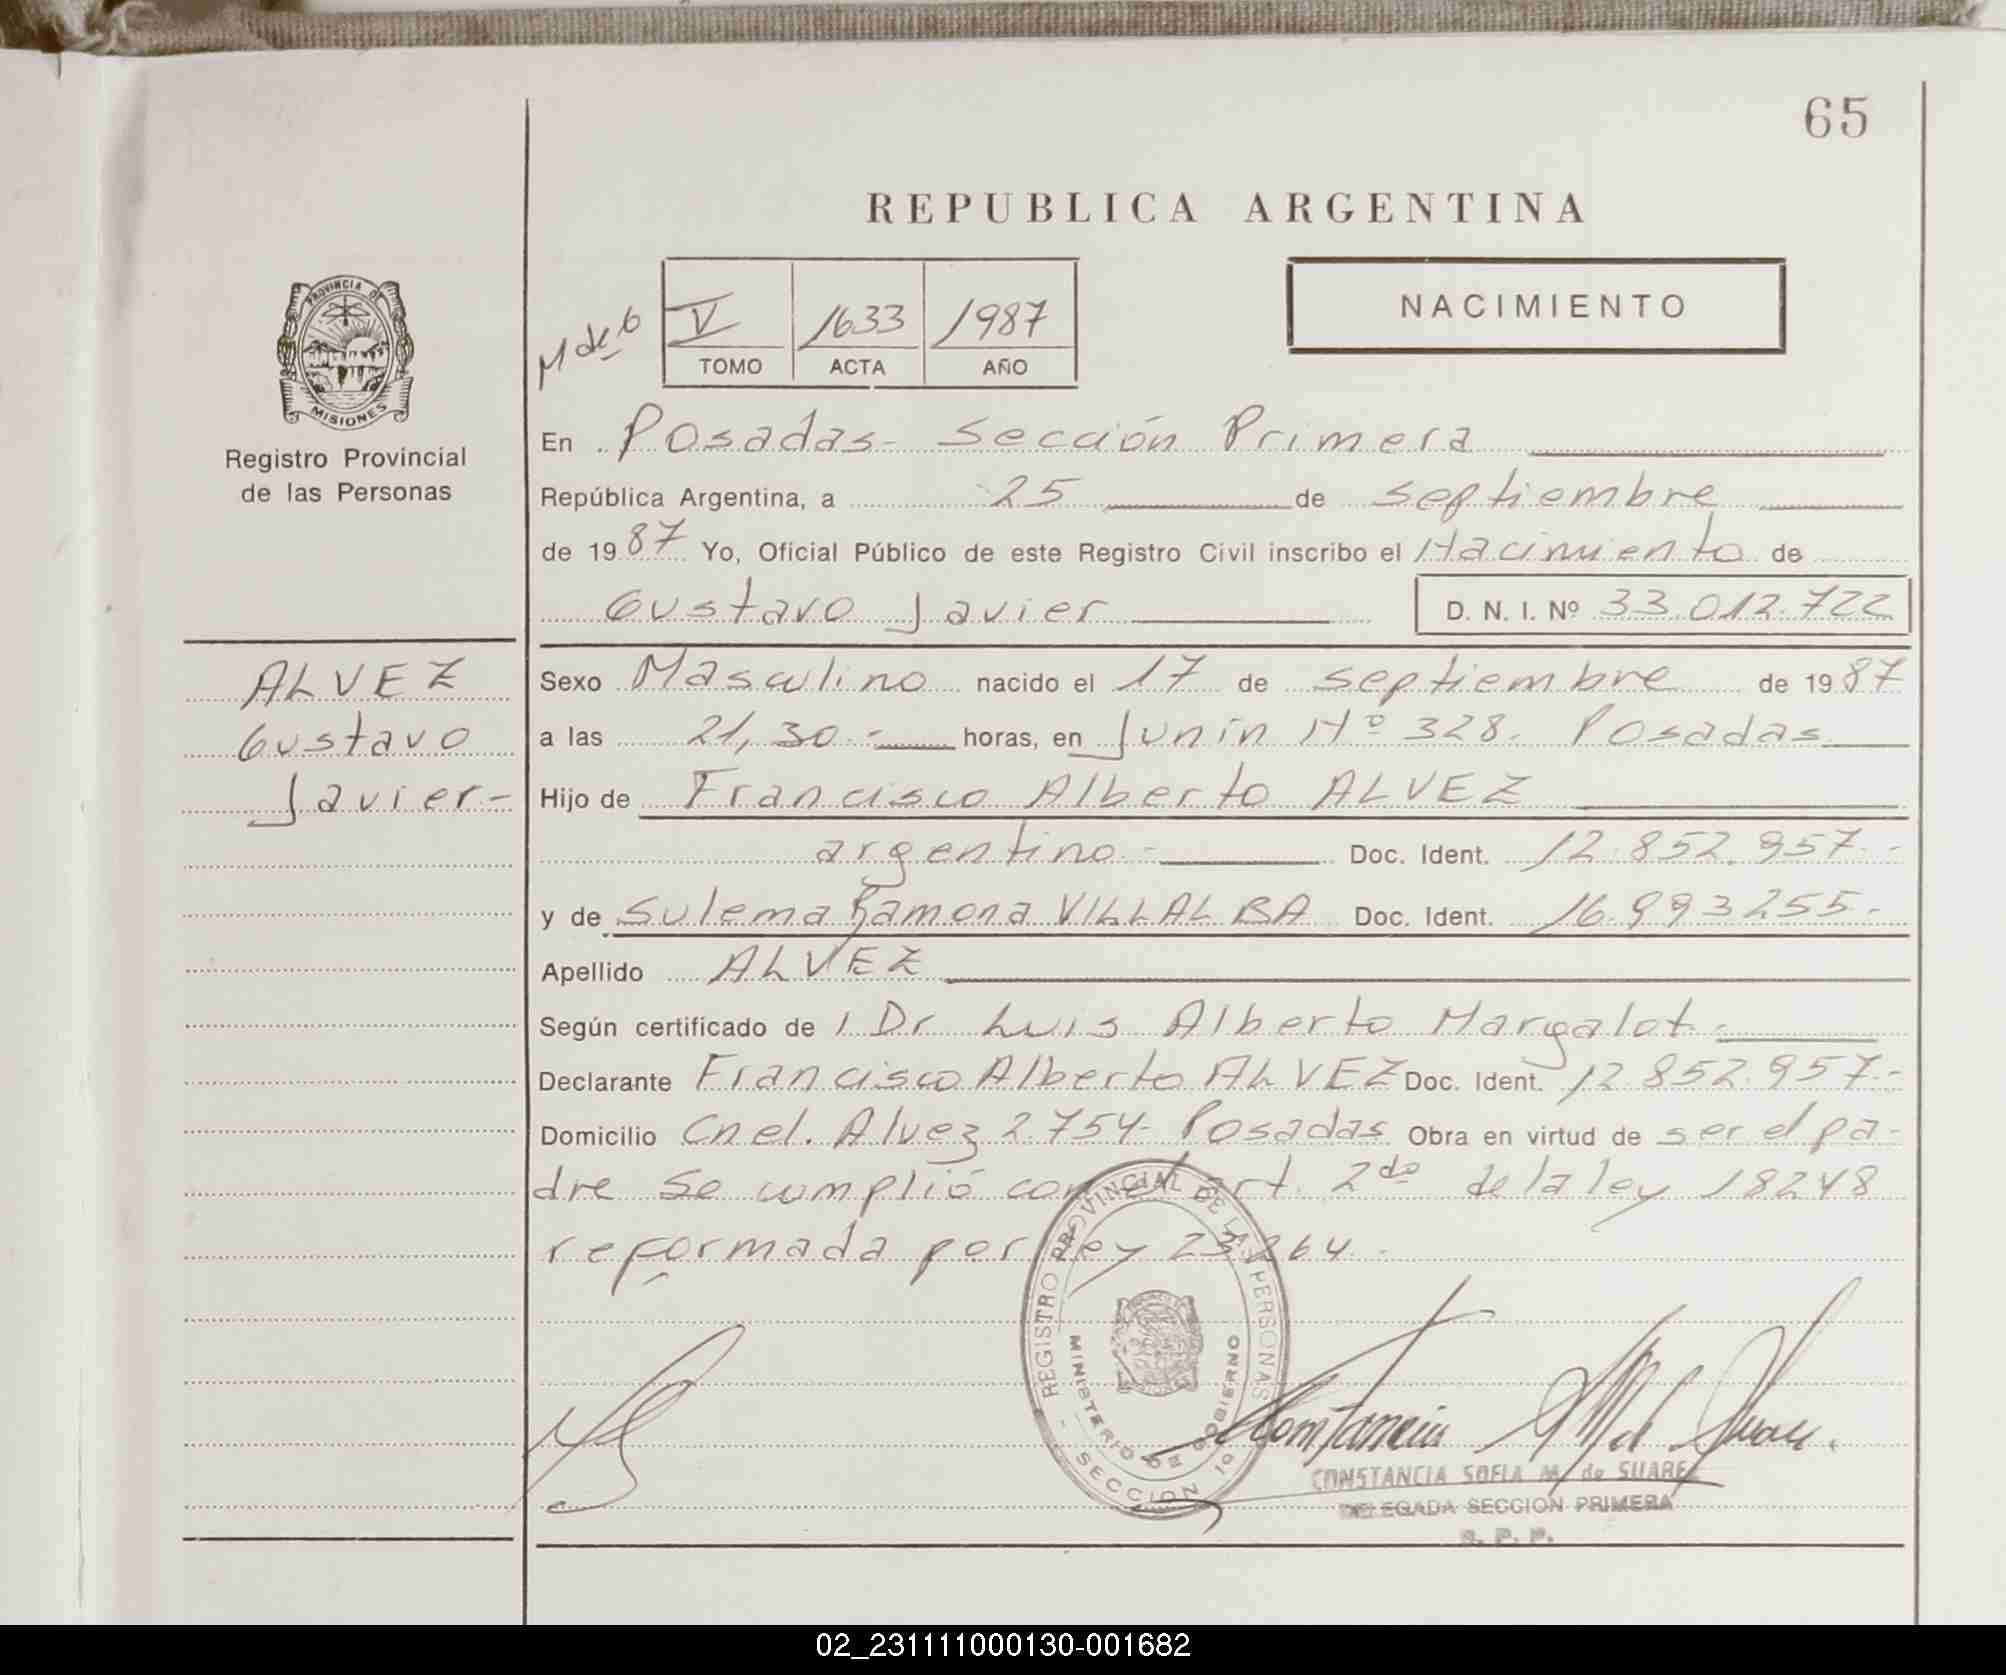 65
REPUBLICA ARGENTINA
NACIMIENTO
M de 6
V 1633 1987
TOMO ACTA AÑO
PROVINCIA DE
MISIONES
Registro Provincial
de las Personas
En Posadas - Sección Primera
República Argentina, a 25 de septiembre
de 1987 Yo, Oficial Público de este Registro Civil inscribo el Nacimiento de
Gustavo Javier D. N. I. Nº 33.012.722
ALVEZ
Gustavo
Javier-
Sexo Masculino nacido el 17 de septiembre de 1987
a las 21,30.- horas, en Junín Nº 328. Posadas
Hijo de Francisco Alberto ALVEZ
argentino.- Doc. Ident. 12.852.957.-
y de Sulema Ramona VILLALBA Doc. Ident. 16.993.255.-
Apellido ALVEZ
Según certificado de Dr Luis Alberto Margalot.
Declarante Francisco Alberto ALVEZ Doc. Ident. 12.852.957.-
Domicilio Cnel. Alvez 2.754- Posadas Obra en virtud de ser el pa-
dre se cumplió con el art. 2do de la ley 18248
reformada por ley 23264.-
REGISTRO PROVINCIAL DE LAS PERSONAS
MINISTERIO DE GOBIERNO
- SECCION 1º
Constancia M de Suarez
CONSTANCIA SOFIA M. de SUAREZ
DELEGADA SECCION PRIMERA
R. P. P.
02_231111000130-001682